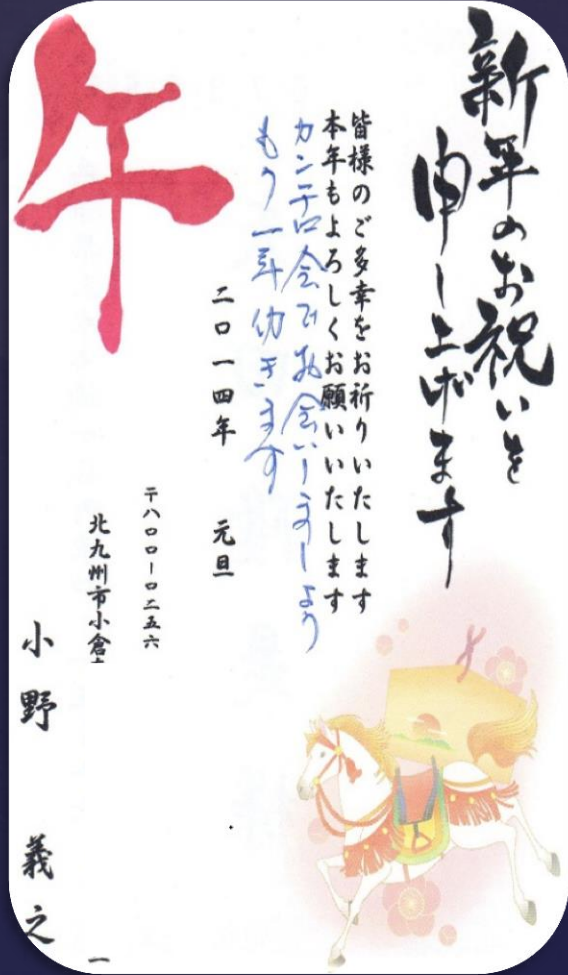 新年のお祝いを
申し上げます
皆様のご多幸をお祈りいたします
本年もよろしくお願いいたします
カンテロ会でお会いしましょう
もう一年働きます
二〇一四年 元旦
午
〒八〇〇-〇二五六
北九州市小倉
小野 義之